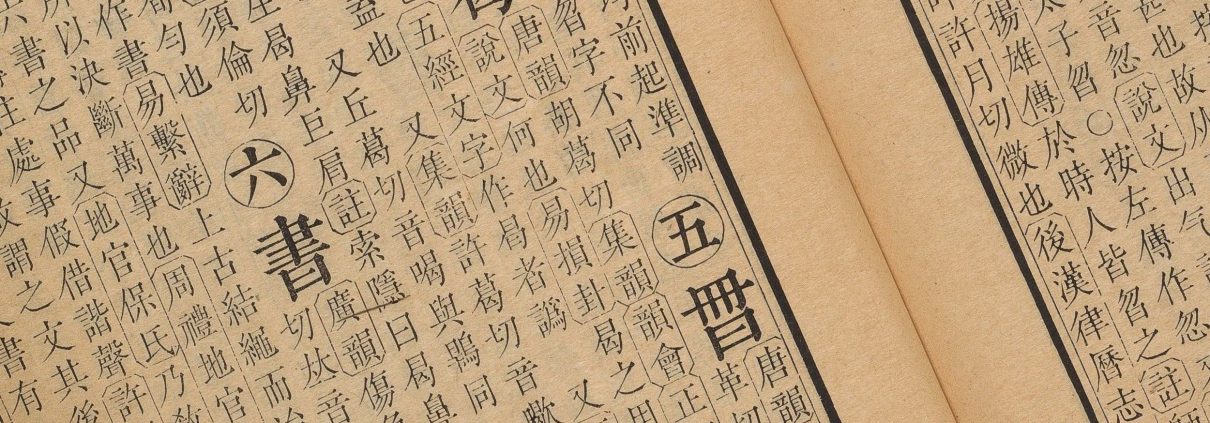 甚也故
音忽說文出气
太子曶○按左傳作忽
揚雄傳於時人皆曶之註
許月切微也後漢律曆志
前起準調
曶字不同
五
唐韻
革切
唐韻胡葛切集韻韻會正
說文何也易損封曷之用
五經文字作曷者譌又
蓋也又集韻許葛切音歇
又丘葛切音喝與鶡同
曷鼻巨肩註索隱曰曷鼻
須倫切
匀也
六書
廣韻傷
切𠀤音
作書易繫辭上古結繩而
以決斷萬事也周禮地官
書之品又地官保氏乃教
處事假借諧聲許
謂之文其後
書有